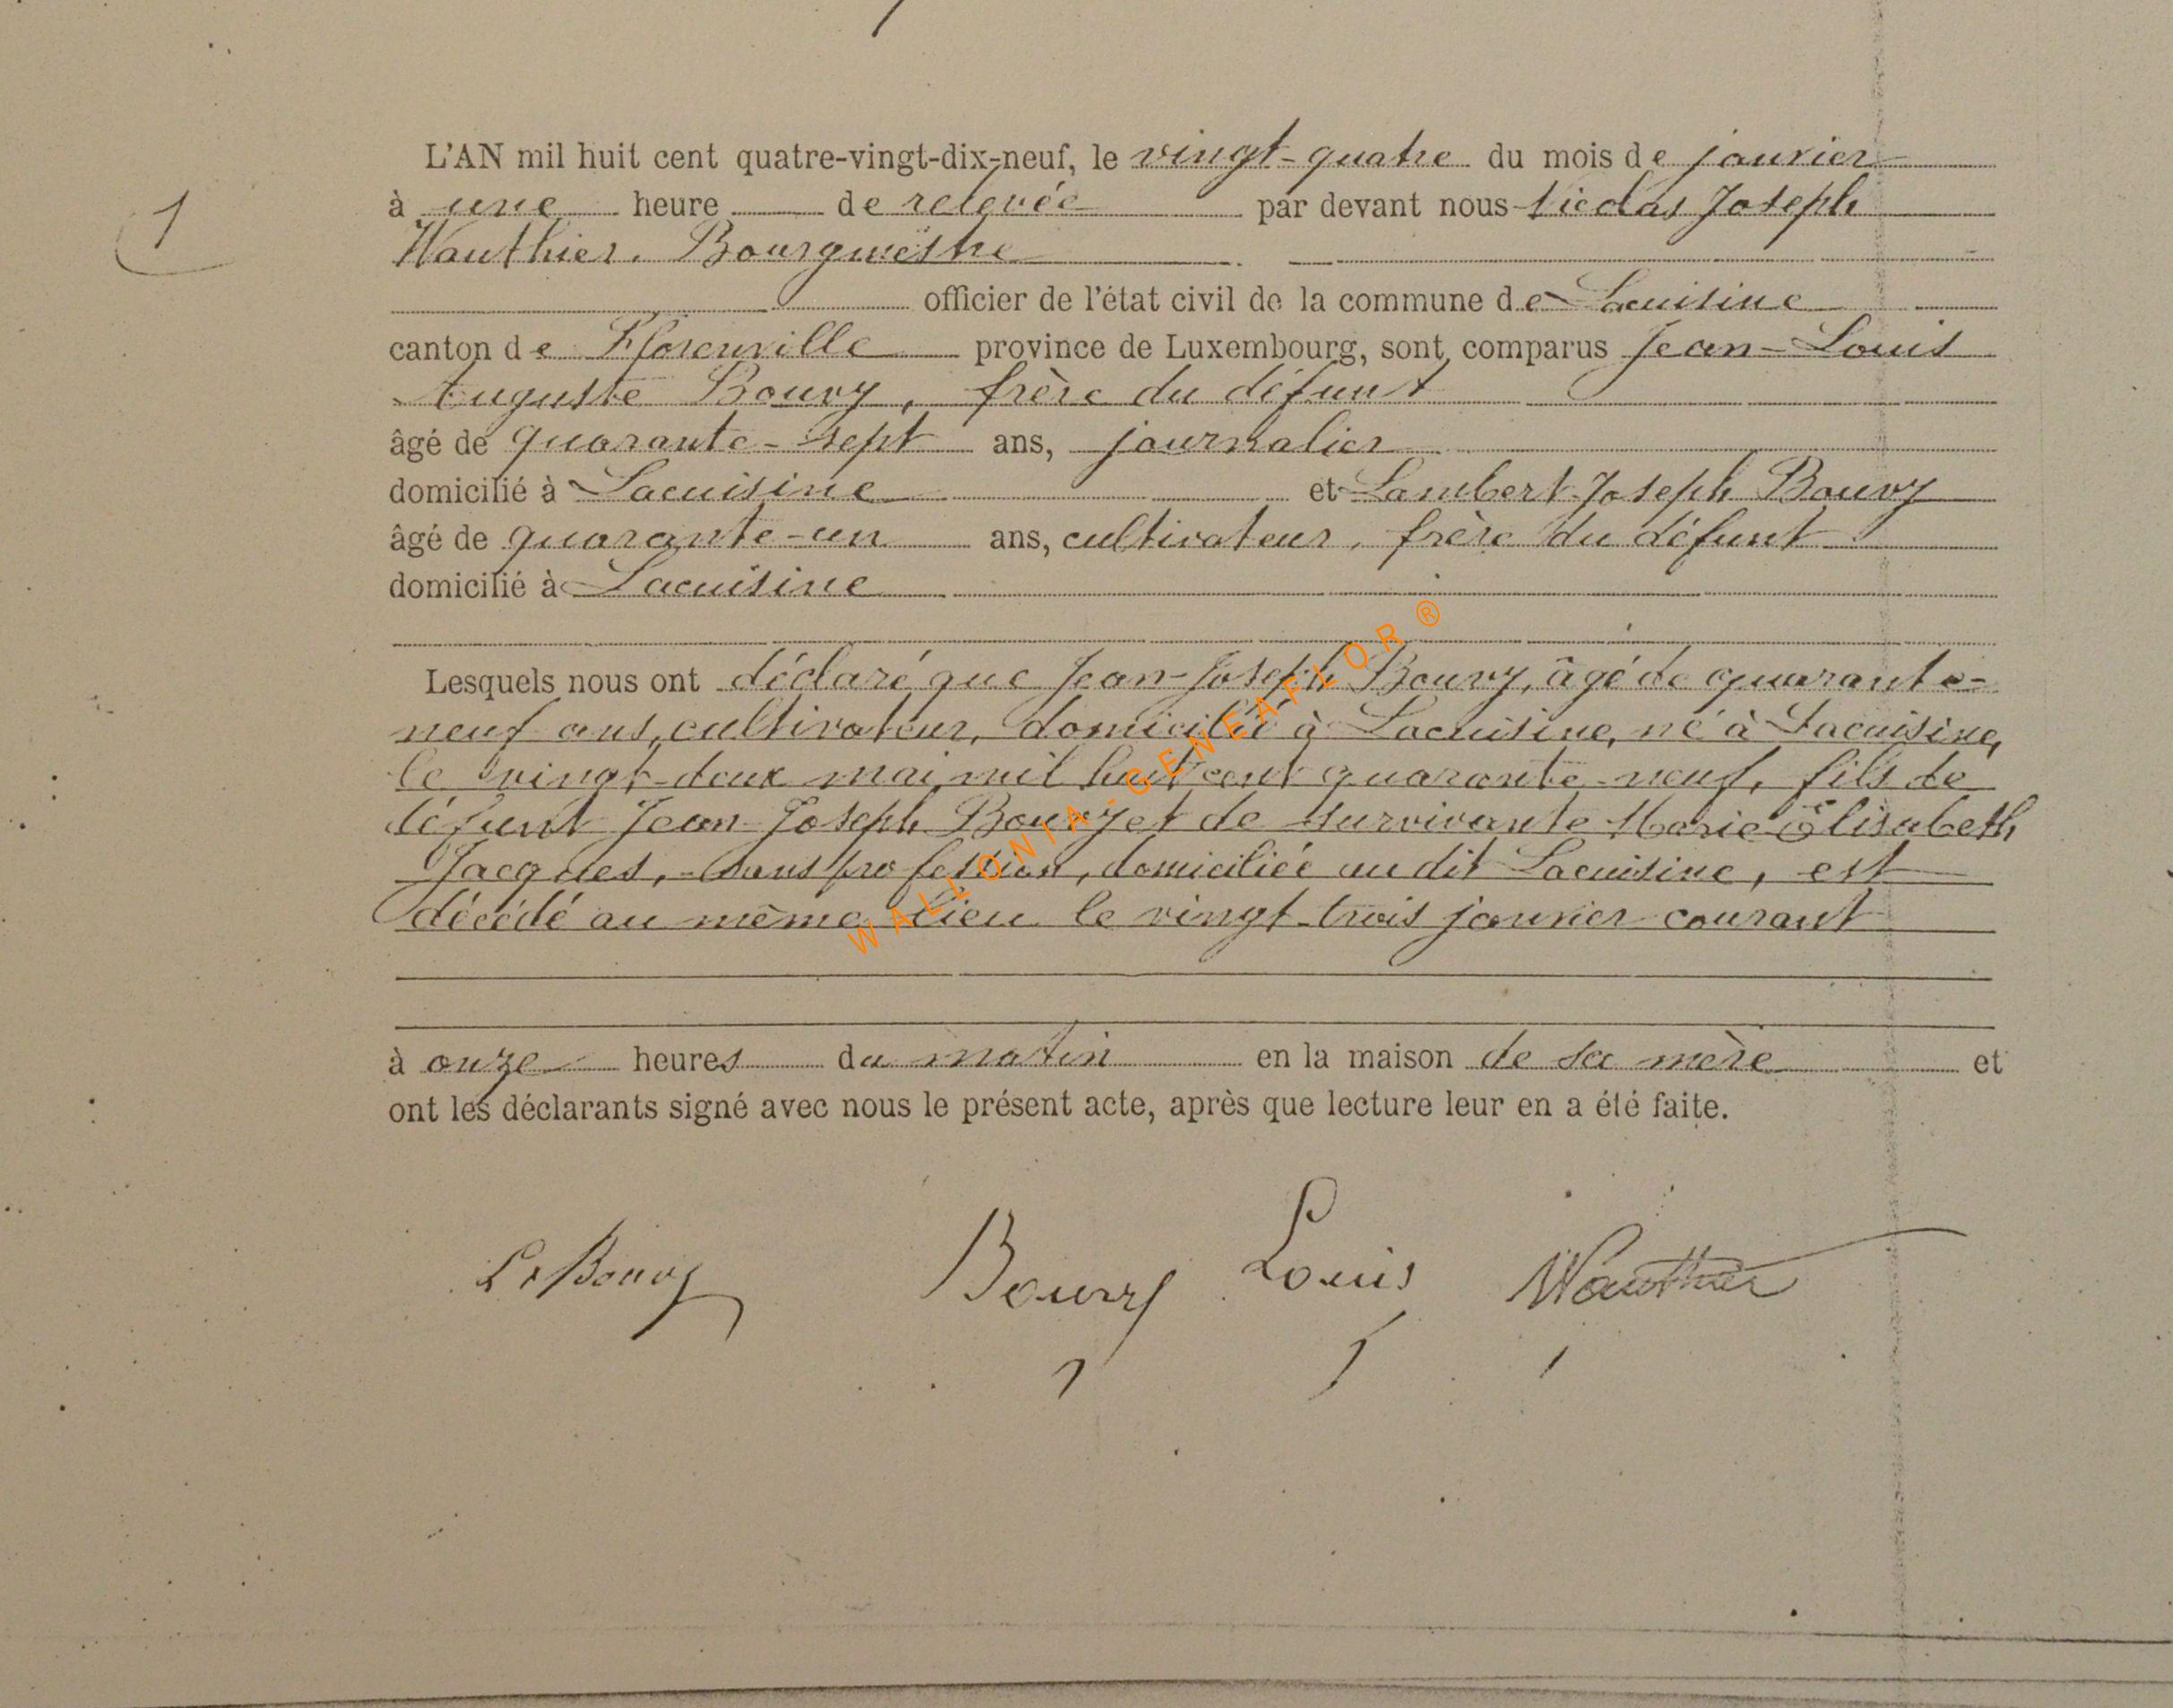 L'AN mil huit cent quatre-vingt-dix-neuf, le vingt-quatre du mois de janvier
1
à une heure de relevée par devant nous Nicolas Joseph
Wauthier, Bourgmestre
officier de l'état civil de la commune de Lacuisine
canton de Florenville province de Luxembourg, sont comparus Jean-Louis
Auguste Bouvy, frère du défunt
âgé de quarante-sept ans, journalier
domicilié à Lacuisine et Lambert Joseph Bouvy
âgé de quarante-un ans, cultivateur, frère du défunt
domicilié à Lacuisine
Lesquels nous ont déclaré que Jean-Joseph Bouvy, âgé de quarante-
neuf ans, cultivateur, domicilié à Lacuisine, né à Lacuisine,
le vingt-deux mai mil huit cent quarante-neuf, fils de
défunt Jean-Joseph Bouvy et de survivante Marie Élisabeth
Jacques, sans profession, domiciliée au dit Lacuisine, est
décédé au même lieu le vingt-trois janvier courant
à onze heures du matin en la maison de sa mère et
ont les déclarants signé avec nous le présent acte, après que lecture leur en a été faite.
Bouvy Louis Wauthier
WALLONIA-GENEAFLOR ®